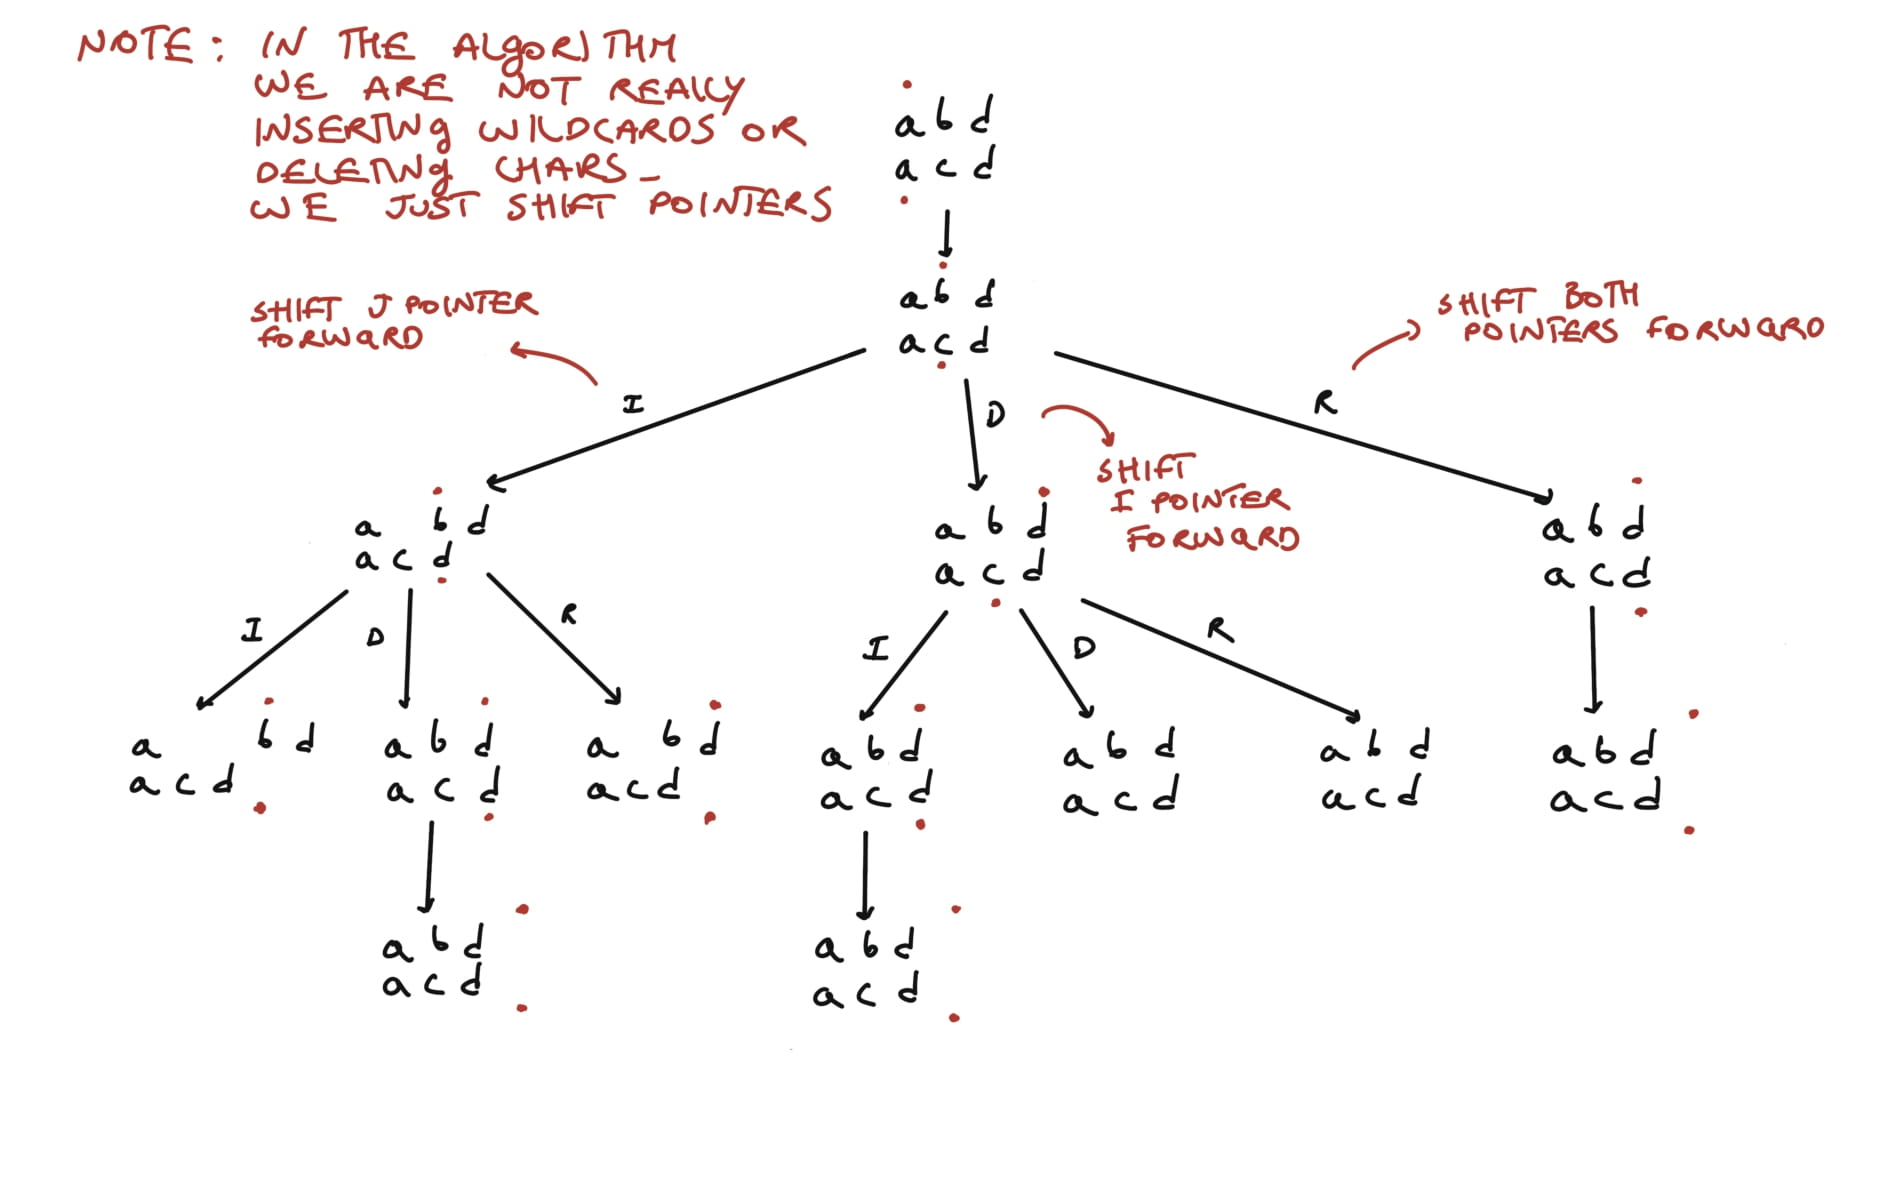 NOTE: IN THE ALgORITHM
WE ARE NOT REALLY
INSERTINg WILDCARDS OR
DELETINg CHARS -
WE JUST SHIFT POINTERS
a b d
a c d
a b d
a c d
SHIFT J POINTER
FORWARD
SHIFT BOTH
POINTERS FORWARD
I
D
R
SHIFT
I POINTER
FORWARD
a b d
a c d
a b d
a c d
a b d
a c d
I
D
R
I
D
R
a b d
a c d
a b d
a c d
a b d
a c d
a b d
a c d
a b d
a c d
a b d
a c d
a b d
a c d
a b d
a c d
a b d
a c d